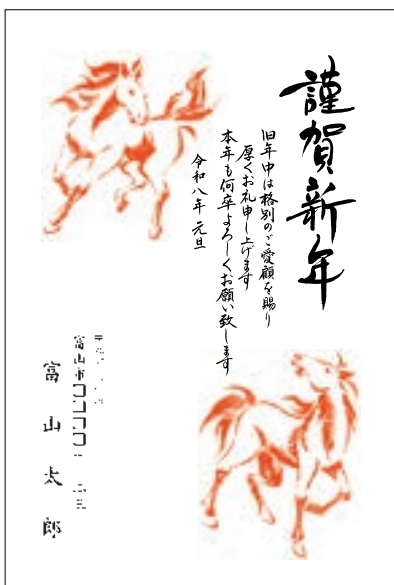 謹賀新年
旧年中は格別のご愛顧を賜り
厚くお礼申し上げます
本年も何卒よろしくお願い致します
令和八年 元旦
富山市
富山太郎